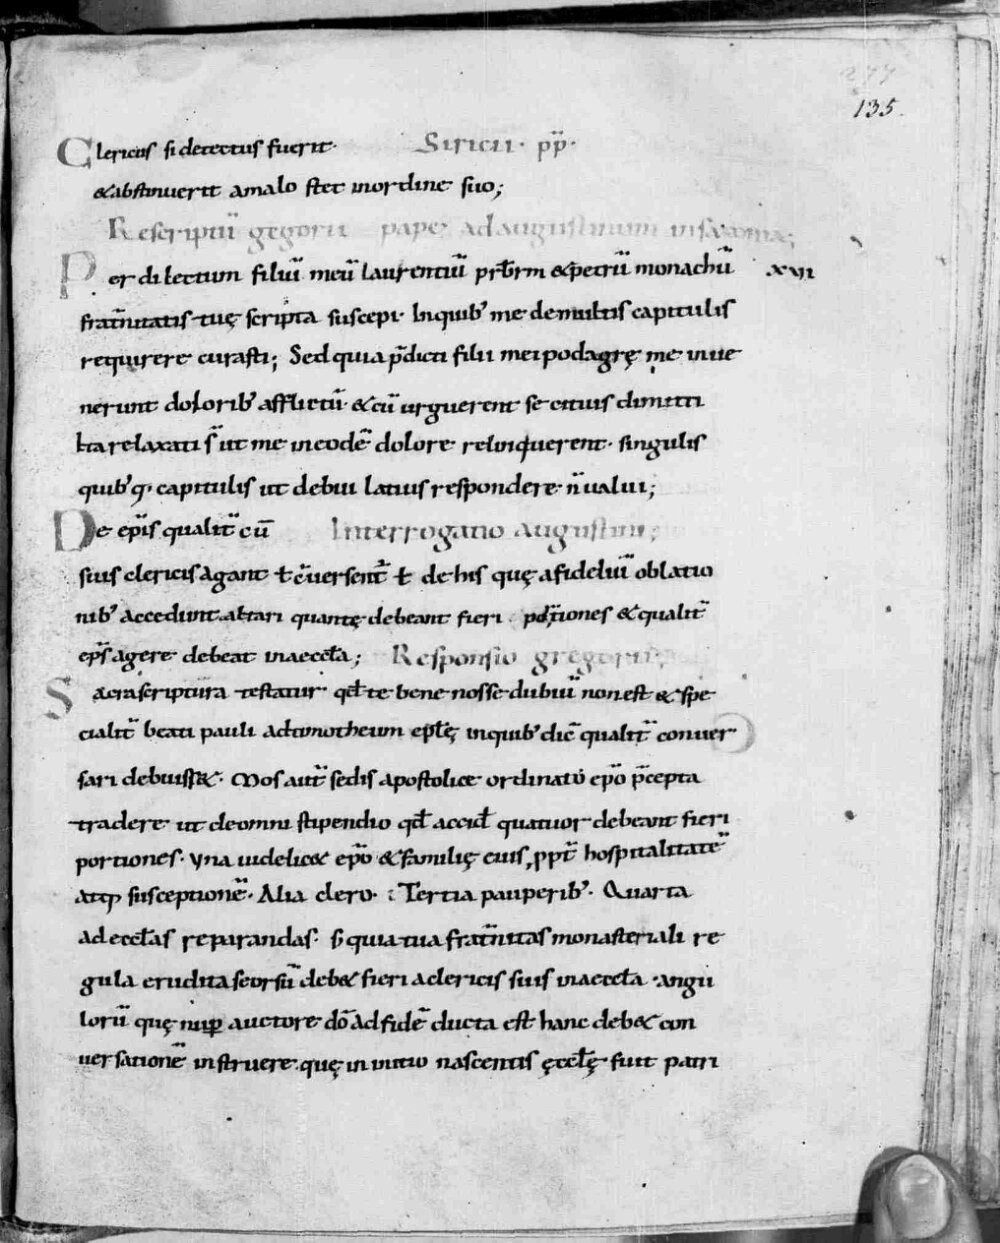 277
135.
Clericus si detectus fuerit· Siricii· pp̄·
&abstinuerit amalo stet inordine suo;
Rescriptū gregorii papę adaugustinum insaxonia;
Per dilectum filiū meū laurentiū prb̄rm &petrū monachū xvi
frat̄nitatis tuę scripta suscepi· Inquib' me demultis capitulis
requirere curasti; Sed quia p̄dicti filii mei podagrę me inue
nerunt dolorib' afflictū· &cū urguerent se citius dimitti
Ita relaxati s̄ ut me ineodē dolore relinquerent· singulis
quib'q· capitulis ut debui latius respondere n̄ ualui;
De ep̄is qualit̄ cū Interrogatio augustini;
suis clericis agant ƚ c̄uersent̄ ƚ de his quę afidelium oblatio
nib' accedunt altari quantę debeant fieri portiones &qualit̄
ep̄s agere debeat inaeccƚa; Responsio gregorii;
Sacra scriptura testatur qđ te bene nosse dubiū non est & spe
cialit̄ beati pauli adtimotheum epƚę inquib' dic̄ qualit̄ conuer
sari debuiss&· Mos aut̄ sedis apostolice ordinatō ep̄o p̄cepta
tradere ut deomni stipendio qđ accid̄ quatuor debeant fieri
portiones· Vna uidelic& ep̄o &familię eius, ppt̄ hospitalitatē
atq; susceptionē· Alia clero· Tertia pauperib'· Quarta
adeccƚas reparandas· s; quia tua frat̄nitas monasteriali re
gula erudita seorsū deb& fieri aclericis suis inaeccƚa angu
lorū quę nuꝑ auctore dō adfidē ducta est hanc deb& con
uersationē instruere. quę in initio nascentis ęccƚę fuit patri